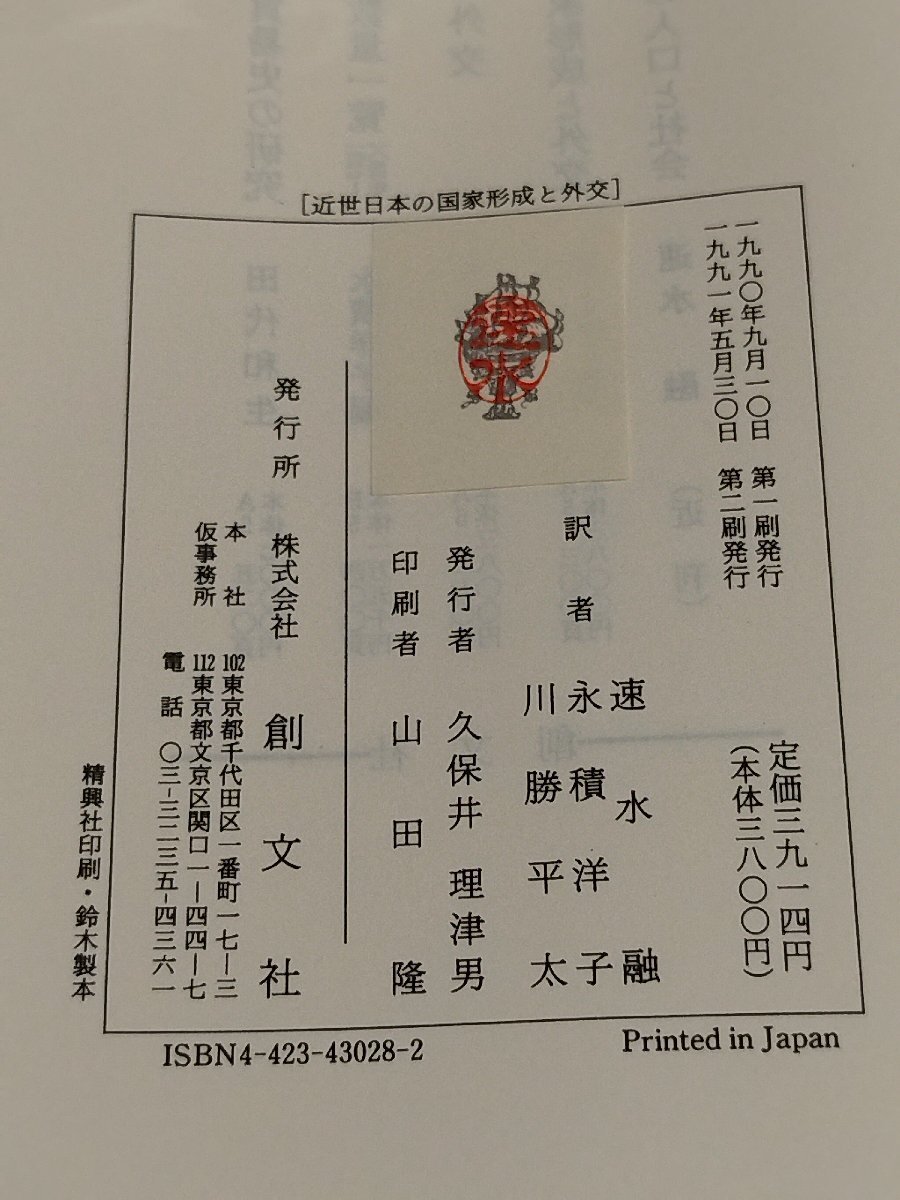 [近世日本の国家形成と外交]
一九九〇年九月一〇日 第一刷発行
一九九一年五月三〇日 第二刷発行
定価三九一四円
(本体三八〇〇円)
速水
訳者
速水融
永積洋子
川勝平太
発行者 久保井理津男
印刷者 山田隆
発行所 株式会社 創文社
本社 102東京都千代田区一番町一七―三
仮事務所 112東京都文京区関口一―四四―七
電話 〇三-三二三五-四三六一
精興社印刷・鈴木製本
ISBN4-423-43028-2
Printed in Japan